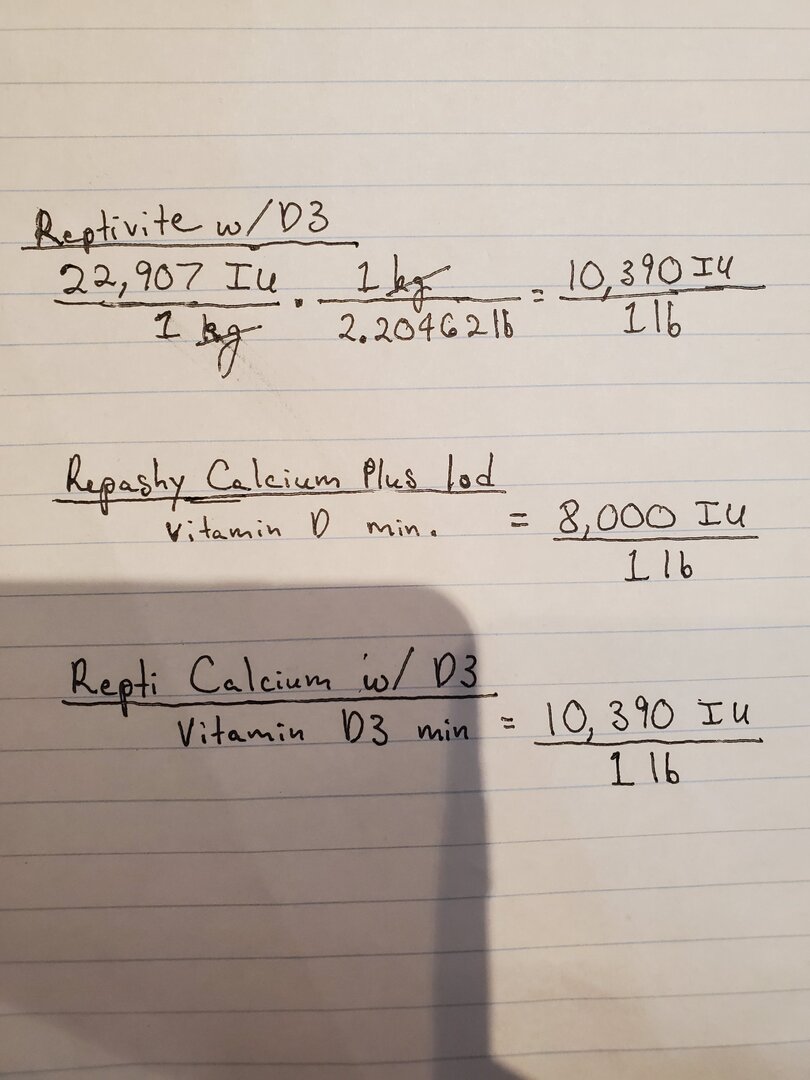 Reptivite w/D3
22,907 IU / 1 kg · 1 kg / 2.20462 lb = 10,390 IU / 1 lb
Repashy Calcium Plus lod
Vitamin D min. = 8,000 IU / 1 lb
Repti Calcium w/ D3
Vitamin D3 min = 10,390 IU / 1 lb